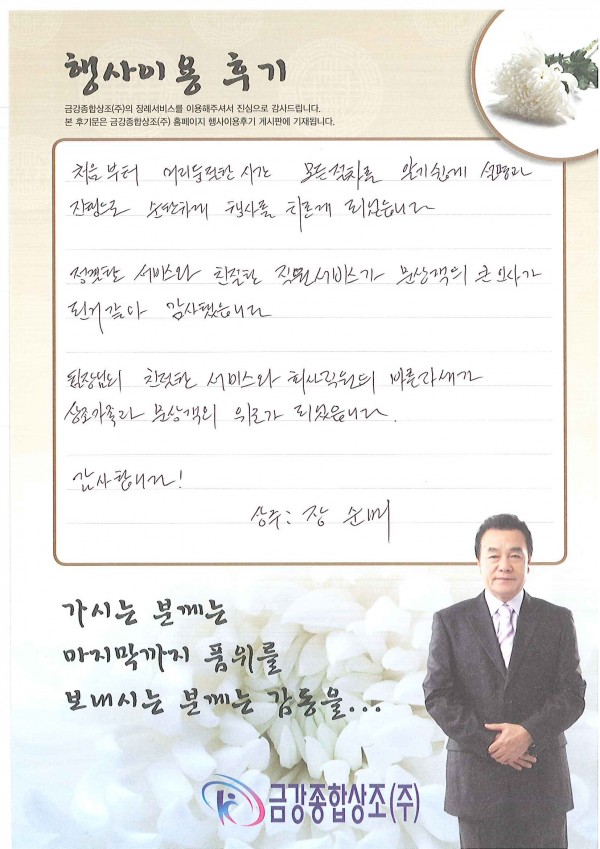 행사이용 후기
금강종합상조(주)의 장례서비스를 이용해주셔서 진심으로 감사드립니다.
본 후기문은 금강종합상조(주) 홈페이지 행사이용후기 게시판에 기재됩니다.
처음부터 마지막 시간 모든절차를 알기쉽게 설명과
진행으로 순탄하게 행사를 치르게 되었습니다
서비스와 친절한 직원서비스가 문상객의 큰 인사가
된거같아 감사했습니다
팀장님의 친절한 서비스와 회사직원의 바른자세가
상조가족과 문상객의 위로가 되었습니다.
감사합니다!
상주: 장 순
가시는 분께는
마지막까지 품위를
보내시는 분께는 감동을...
금강종합상조(주)